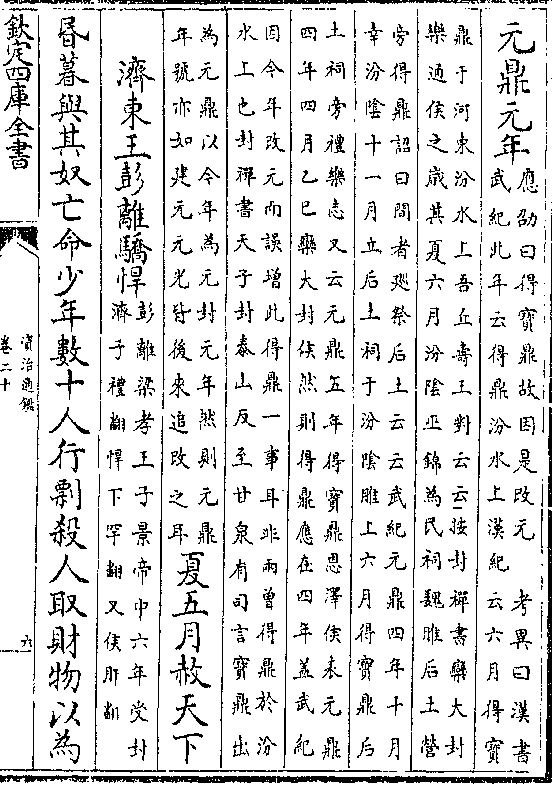 元鼎元年
應劭曰得寶鼎故因是改元 考異曰漢書
武紀此年云得鼎汾水上漢紀云六月得寶
鼎于河東汾水上吾丘壽王對云云按封禪書欒大封
樂通侯之歲其夏六月汾陰巫錦為民祠魏脽后土營
旁得鼎詔曰間者廵祭后土云云武紀元鼎四年十月
幸汾陰十一月立后土祠于汾陰脽上六月得寶鼎后
土祠旁禮樂志又云元鼎五年得寶鼎恩澤侯表元鼎
四年四月乙巳欒大封侯然則得鼎應在四年蓋武紀
因今年改元而誤增此得鼎一事耳非兩曾得鼎於汾
水上也封禪書天子封泰山反至甘泉有司言寶鼎出
為元鼎以今年為元封元年然則元鼎
年號亦如建元元光皆後來追改之耳
夏五月赦天下
濟東王彭離驕悍
彭離梁孝王子景帝中六年受封
濟子禮翻悍下罕翻又侯旰翻
昬暮與其奴亡命少年數十人行剽殺人取財物以為
欽定四庫全書
資治通鑑
卷二十
六